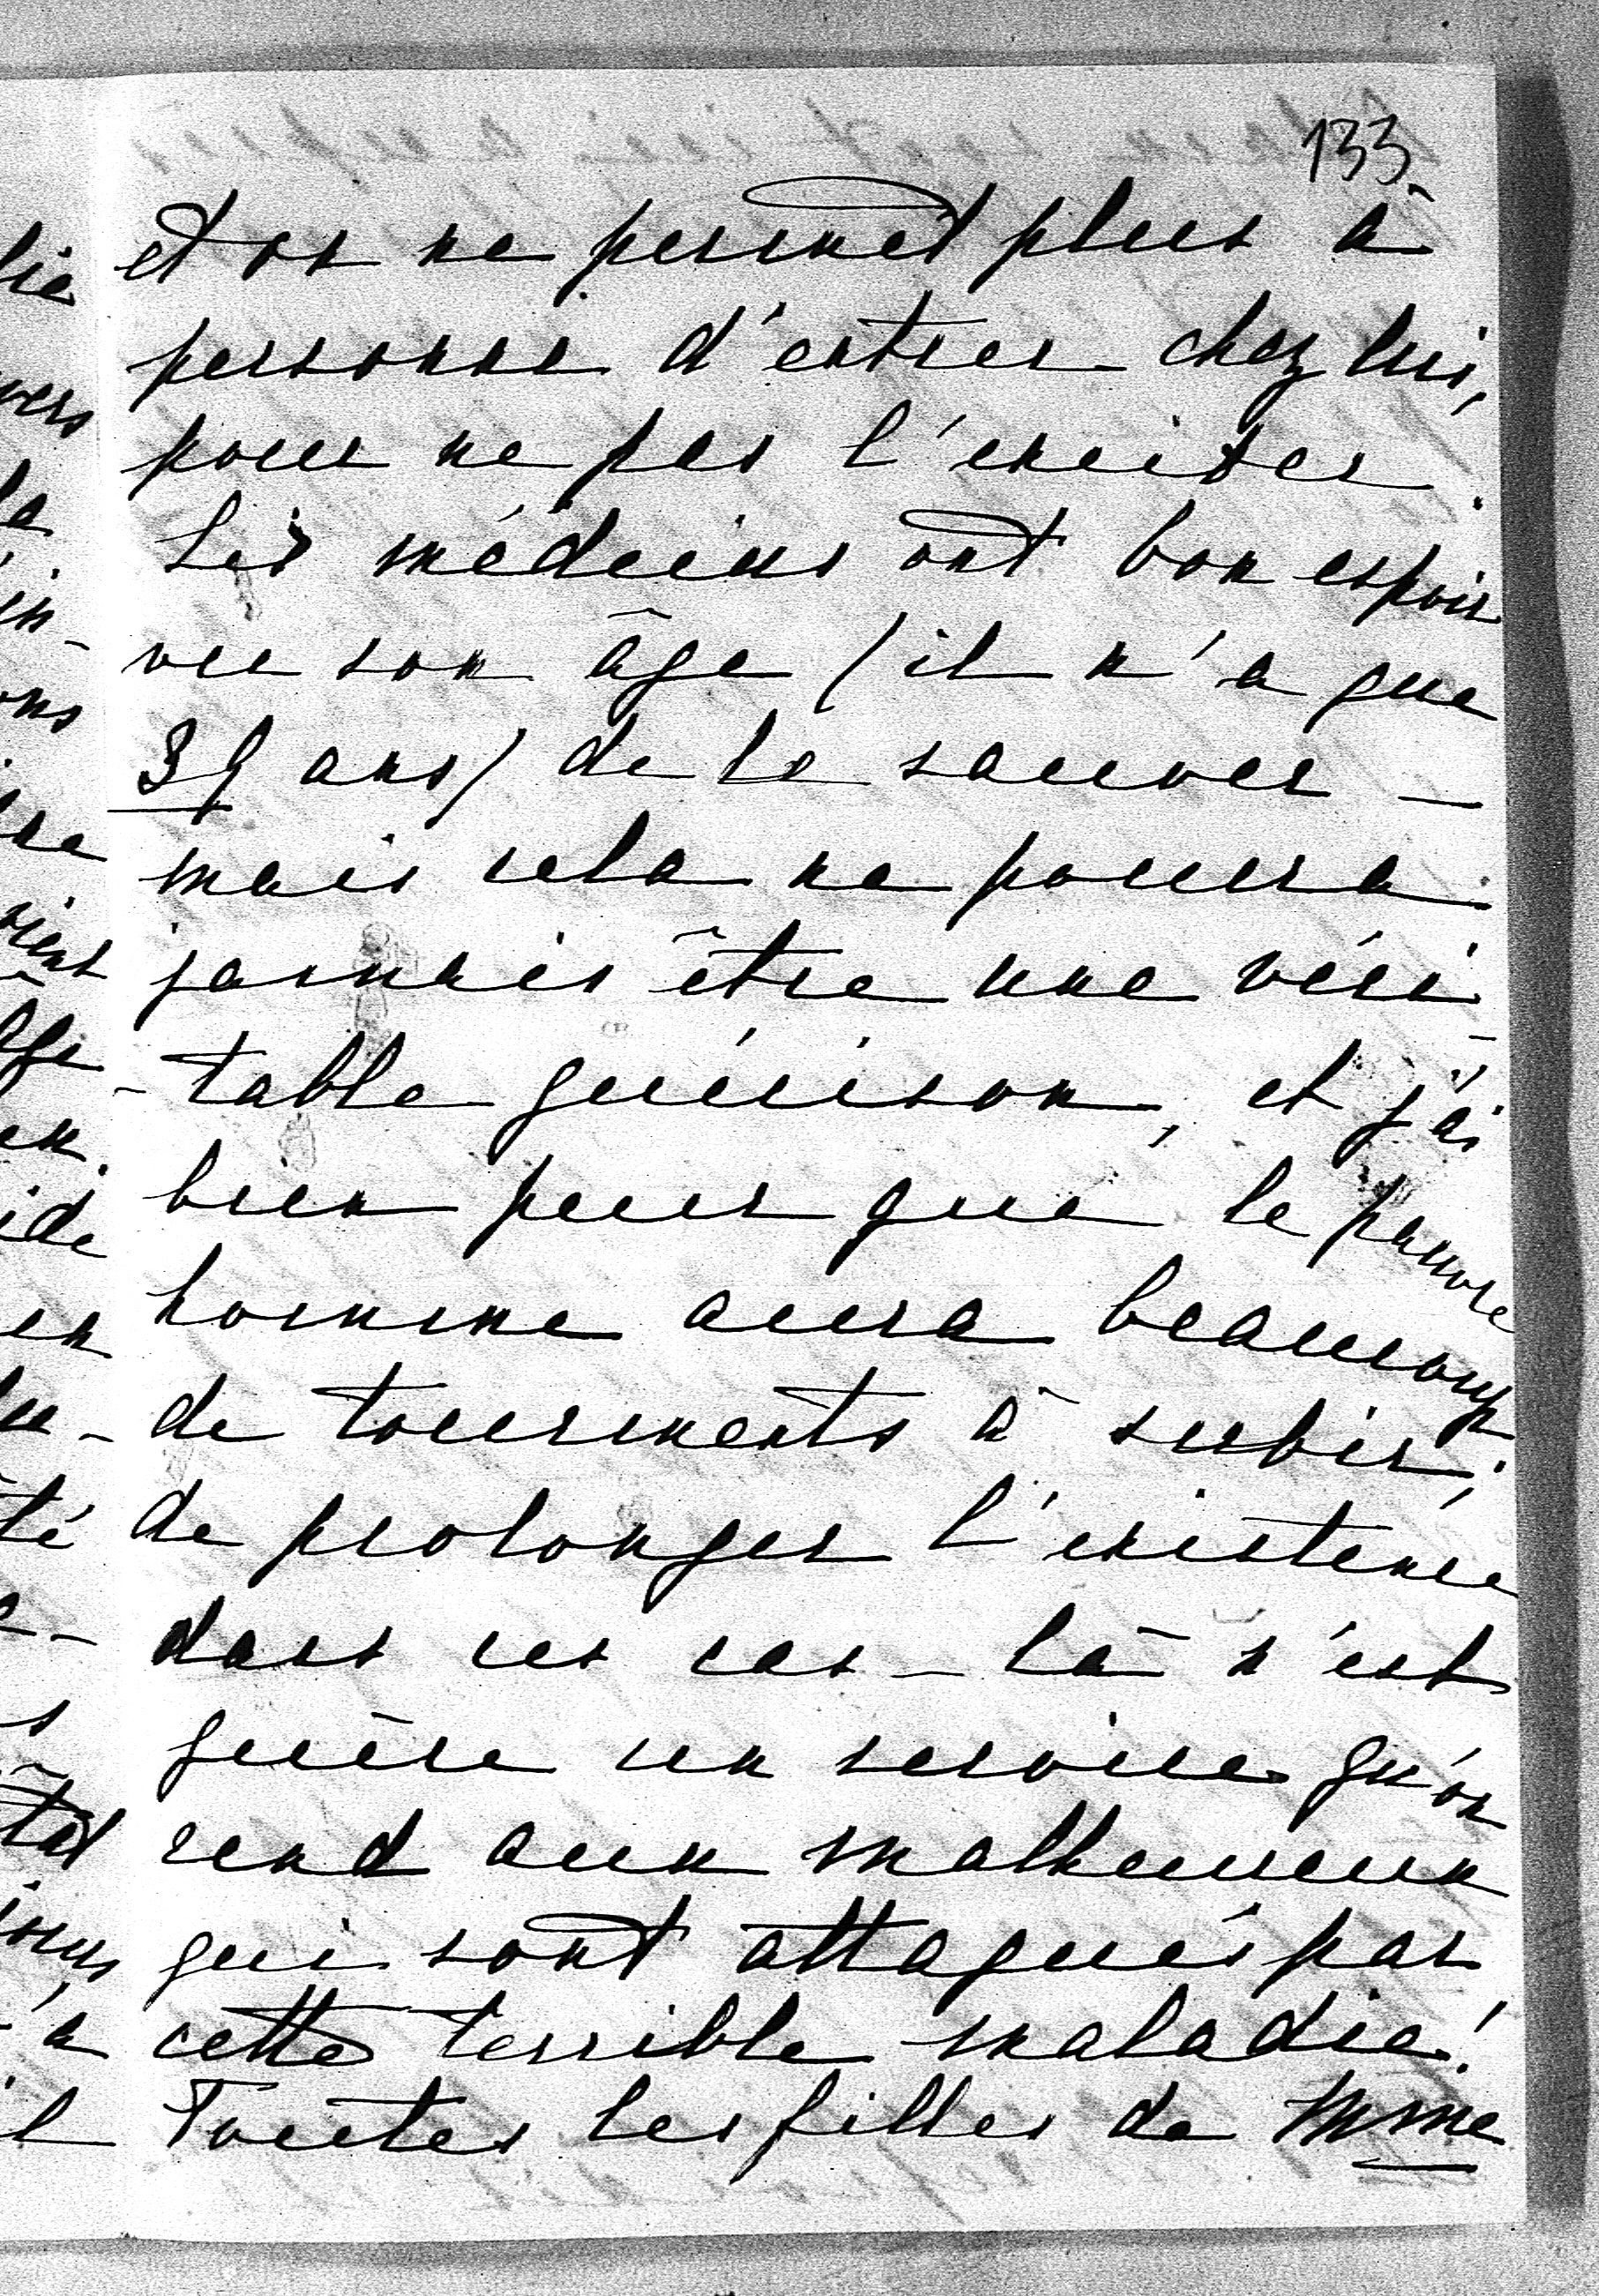 133.
et on ne permet plus à
personne d'entrer chez lui,
pour ne pas l'exciter.
Les médecins ont bon espoir
vu son âge (il n'a que
39 ans) de le sauver —
mais cela ne pourra
jamais être une véri-
-table guérison, et j'ai
bien peur que le pauvre
homme aura beaucoup
de tourments à subir;
de prolonger l'existence
dans ces cas-là n'est
guère un service qu'on
rend aux malheureux
qui sont attaqués par
cette terrible maladie!
Toutes les filles de Mme